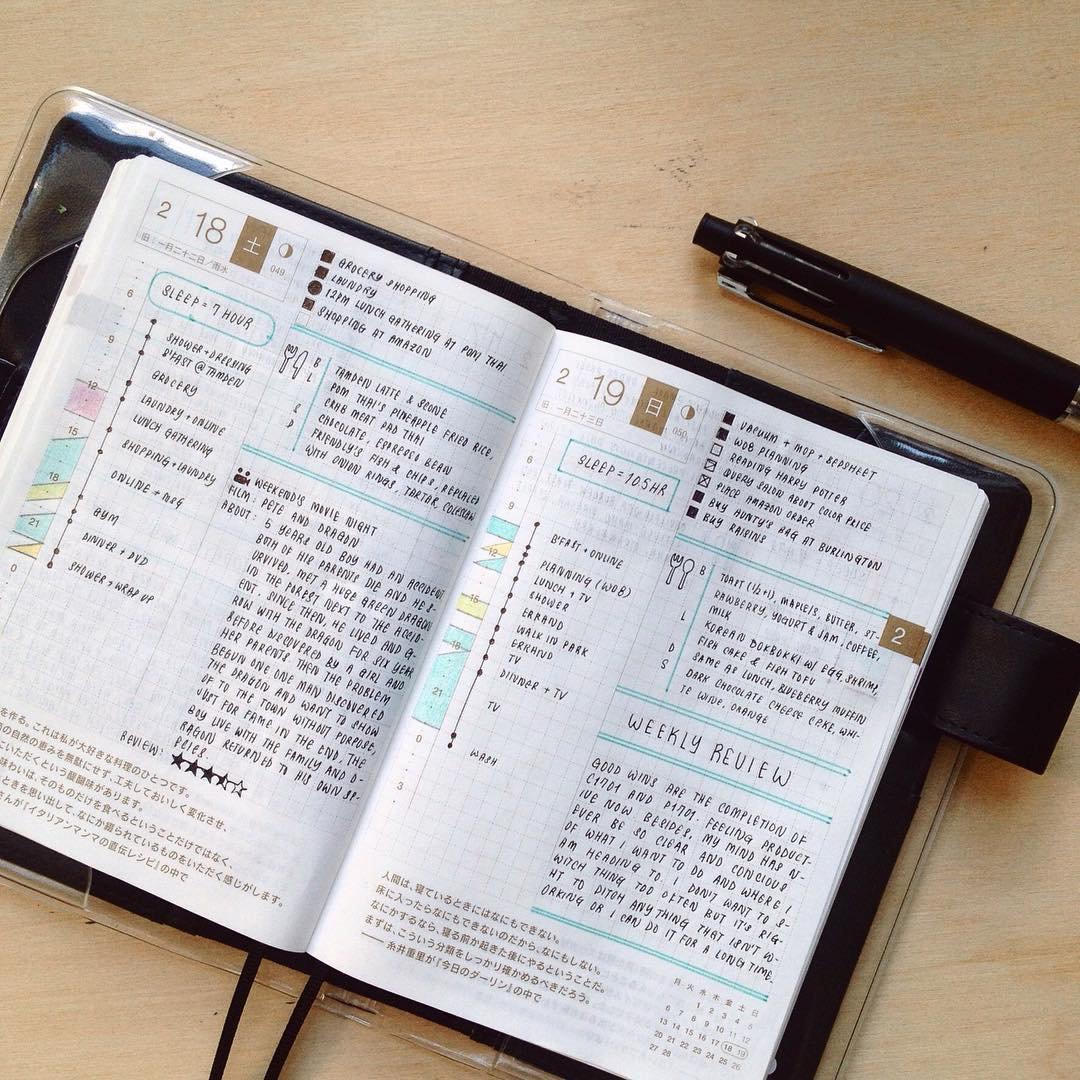 2 18 土
旧:一月二十二日/雨水 049
SLEEP = 7 HOUR
GROCERY SHOPPING
LAUNDRY
12PM LUNCH GATHERING AT POM THAI
SHOPPING AT AMAZON
6
9
12
15
18
21
0
SHOWER + DRESSING
B'FAST @ TAMDEN
GROCERY
LAUNDRY + ONLINE
LUNCH GATHERING
SHOPPING + LAUNDRY
ONLINE + MSG
GYM
DINNER + DVD
SHOWER + WRAP UP
B
L
S
D
TAMDEN LATTE & SCONE
POM THAI'S PINEAPPLE FRIED RICE,
CRAB MEAT PAD THAI
CHOCOLATE, ESPRESO BEAN
FRIENDLY'S FISH & CHIPS, REPLACED
WITH ONION RINGS, TARTAR, COLESAW
WEEKEND'S MOVIE NIGHT
FILM : PETE AND DRAGON
ABOUT : 5 YEARS OLD BOY HAD AN ACCIDENT
BOTH OF HIS PARENTS DIE AND HE S-
URVIVED, MET A HUGE GREEN DRAGON
IN THE FOREST NEXT TO THE ACCID-
ENT. SINCE THEN, HE LIVED AND G-
ROW WITH THE DRAGON FOR SIX YEAR
BEFORE DISCOVERED BY A GIRL AND
HER PARENTS. THEN THE PROBLEM
BEGUN ONE MAN DISCOVERED
THE DRAGON AND WANT TO SHOW
OF TO THE TOWN WITHOUT PURPOSE,
JUST FOR FAME. IN THE END, THE
BOY LIVE WITH THE FAMILY AND D-
RAGON RETURNED TO HIS OWN SP-
ECIES.
REVIEW : ★★★★☆
を作る。これは私が大好きな料理のひとつです。
の自然の恵みを無駄にせず、工夫しておいしく変化させ、
いただくという醍醐味があります。
味わいは、そのものだけを食べるということだけではなく、
ときを思い出して、なにか綴られているものをいただく感じがします。
さんが『イタリアンマンマの直伝レシピ』の中で
2 19 日
旧:一月二十三日 050
SLEEP = 10.5 HR
VACUUM + MOP + BEDSHEET
WOB PLANNING
READING HARRY POTTER
QUERY SALON ABOUT COLOR PRICE
PLACE AMAZON ORDER
BUY AUNTY'S BAG AT BURLINGTON
BUY RAISINS
6
9
12
15
18
21
0
3
B'FAST + ONLINE
PLANNING (WOB)
LUNCH + TV
SHOWER
ERRAND
WALK IN PARK
ERRAND
TV
DINNER + TV
TV
WASH
B
L
D
S
TOAST (1/2+1), MAPLE/S, BUTTER, ST-
RAWBERRY, YOGURT & JAM, COFFEE,
MILK
KOREAN BOKBOKKI W/ EGG, SHRIMP,
FISH CAKE & FISH TOFU
SAME AS LUNCH, BLUEBERRY MUFFIN
DARK CHOCOLATE CHEESE C'PKE, WHI-
TE WINE, ORANGE
2
WEEKLY REVIEW
GOOD WINS ARE THE COMPLETION OF
C1701 AND P1701. FEELING PRODUCT-
IVE NOW. BESIDES, MY MIND HAS N-
EVER BE SO CLEAR AND CONCIOUS
OF WHAT I WANT TO DO AND WHERE I
AM HEADING TO. I DON'T WANT TO S-
WITCH THING TOO OFTEN BUT IT'S RIG-
HT TO DITCH ANYTHING THAT ISN'T W-
ORKING OR I CAN DO IT FOR A LONG TIME.
人間は、寝ているときにはなにもできない。
床に入ったらなにもできないのだから、なにもしない。
なにかするなら、寝る前か起きた後にやるということだ。
まずは、こういう分類をしっかり確かめるべきだろう。
——糸井重里が『今日のダーリン』の中で
月 火 水 木 金 土 日
1 2 3 4 5
6 7 8 9 10 11 12
13 14 15 16 17 18 19
20 21 22 23 24 25 26
27 28